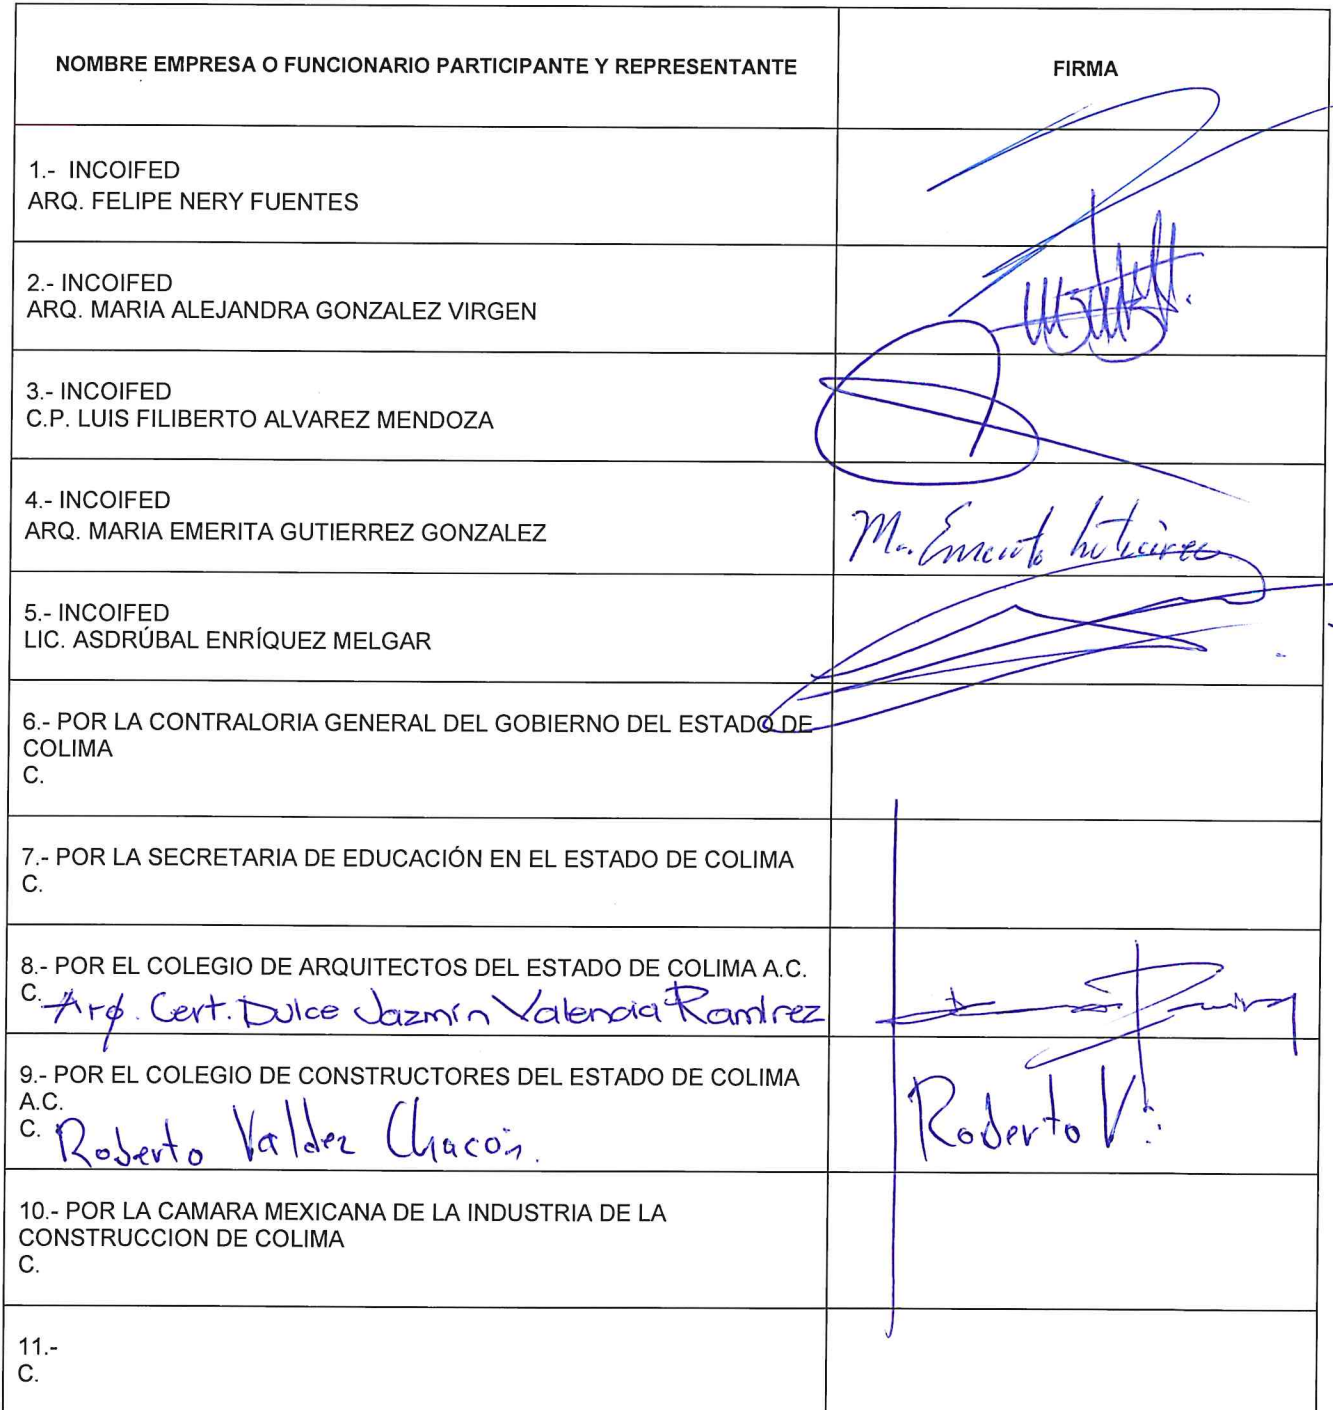 NOMBRE EMPRESA O FUNCIONARIO PARTICIPANTE Y REPRESENTANTE
FIRMA
1.- INCOIFED
ARQ. FELIPE NERY FUENTES
2.- INCOIFED
ARQ. MARIA ALEJANDRA GONZALEZ VIRGEN
3.- INCOIFED
C.P. LUIS FILIBERTO ALVAREZ MENDOZA
4.- INCOIFED
ARQ. MARIA EMERITA GUTIERREZ GONZALEZ
M. Emerita Gutierrez
5.- INCOIFED
LIC. ASDRÚBAL ENRÍQUEZ MELGAR
6.- POR LA CONTRALORIA GENERAL DEL GOBIERNO DEL ESTADO DE
COLIMA
C.
7.- POR LA SECRETARIA DE EDUCACIÓN EN EL ESTADO DE COLIMA
C.
8.- POR EL COLEGIO DE ARQUITECTOS DEL ESTADO DE COLIMA A.C.
C. Arq. Cert. Dulce Jazmín Valencia Ramírez
9.- POR EL COLEGIO DE CONSTRUCTORES DEL ESTADO DE COLIMA
A.C.
C. Roberto Valdez Chacón.
Roberto V.
10.- POR LA CAMARA MEXICANA DE LA INDUSTRIA DE LA
CONSTRUCCION DE COLIMA
C.
11.-
C.